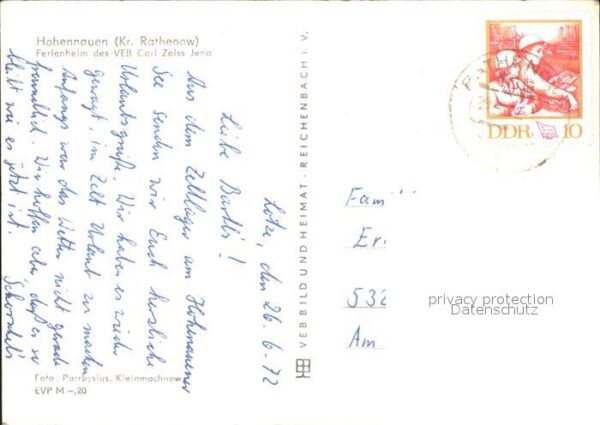 Hohennauen (Kr. Rathenow)
Ferienheim des VEB Carl Zeiss Jena
Lötze, den 26.6.72
Liebe Bärdl's!
Aus dem Zeltlager am Hohennauener
See senden wir Euch herzliche
Urlaubsgrüße. Wir haben es wieder
gewagt, im Zelt Urlaub zu machen.
Anfangs war das Wetter nicht gerade
freundlich. Wir hoffen aber, daß es so
bleibt wie es jetzt ist.
Foto: Parrbysius, Kleinmachnow
EVP M -,20
VEB BILD UND HEIMAT · REICHENBACH I. V.
RATHEN
DDR 10
Fam
Er
532
Am
privacy protection
Datenschutz